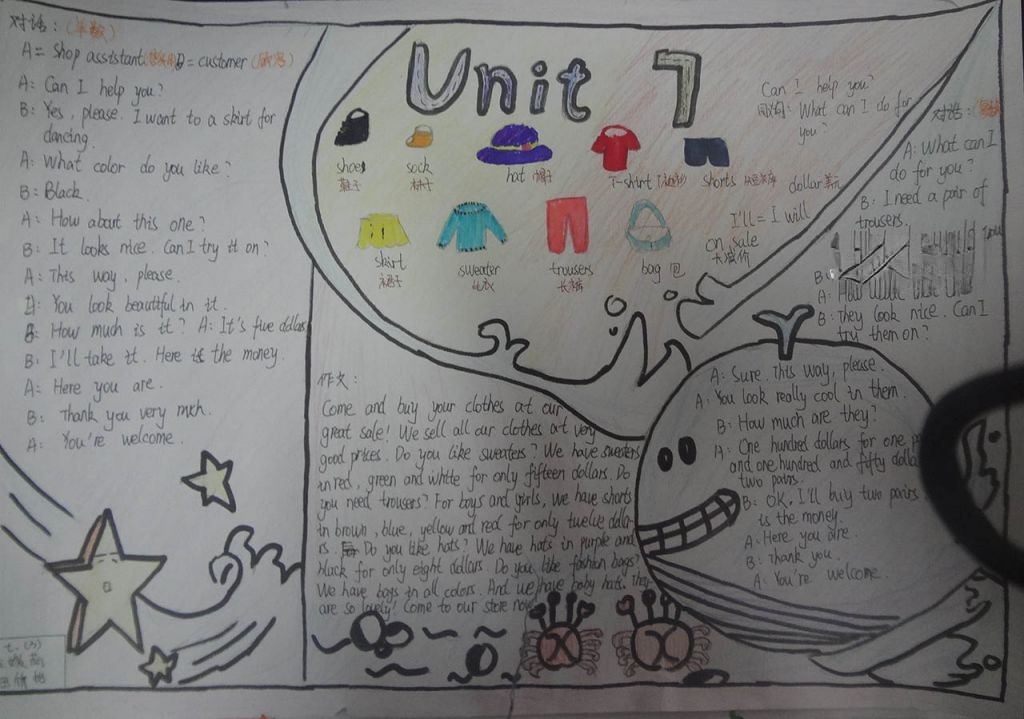 对话：(单数)
A = Shop asststant B = customer (顾客)
A: Can I help you?
B: Yes, please. I want to a skirt for
dancing.
A: What color do you like?
B: Black.
A: How about this one?
B: It looks nice. Can I try it on?
A: This way, please.
You look beautiful in it.
B: How much is it? A: It's five dollars
B: I'll take it. Here is the money.
A: Here you are.
B: Thank you very much.
A: You're welcome.
Unit 7
shoes sock hat 帽子 T-shirt shorts dollar 美元
鞋子 袜子
skirt sweater trousers bag 包
裙子 毛衣 长裤
I'll = I will
on sale
大减价
Can I help you?
同词: What can I do for
you?
作文：
Come and buy your clothes at our
great sale! We sell all our clothes at very
good prices. Do you like sweaters? We have sweaters
in red, green and white for only fifteen dollars. Do
you need trousers? For boys and girls, we have shorts
in brown, blue, yellow and red for only twelve dolla-
rs. Do you like hats? We have hats in purple and
black for only eight dollars. Do you like fashion bags?
We have bags in all colors. And we have baby hats. They
are so lovely! Come to our store now
对话：
A: What can I
do for you?
B: I need a pair of
trousers.
B:
A: How
B: They look nice. Can I
try them on?
A: Sure. This way, please.
A: You look really cool in them.
B: How much are they?
A: One hundred dollars for one
and one hundred and fifty
two pairs.
B: OK. I'll buy two pairs.
is the money.
A: Here you are.
B: Thank you.
A: You're welcome.